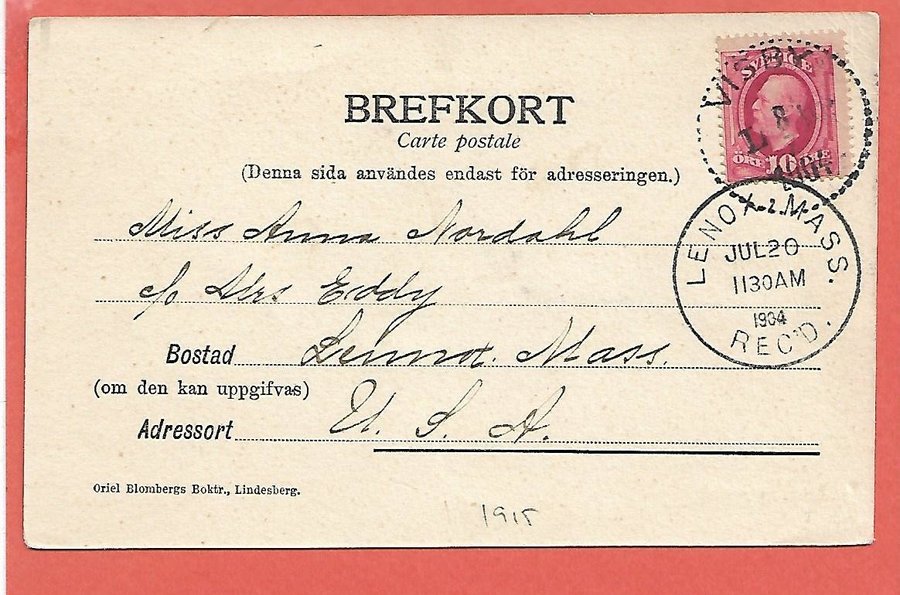 BREFKORT
Carte postale
(Denna sida användes endast för adresseringen.)
SVERIGE
ÖRE 10
VISBY
LENOX. MASS.
JUL 20
1130AM
1904
REC'D.
Miss Anna Nordahl
c/o Mrs Eddy
Bostad Lennox. Mass.
(om den kan uppgifvas)
Adressort U. S. A.
Oriel Blombergs Boktr., Lindesberg.
1915